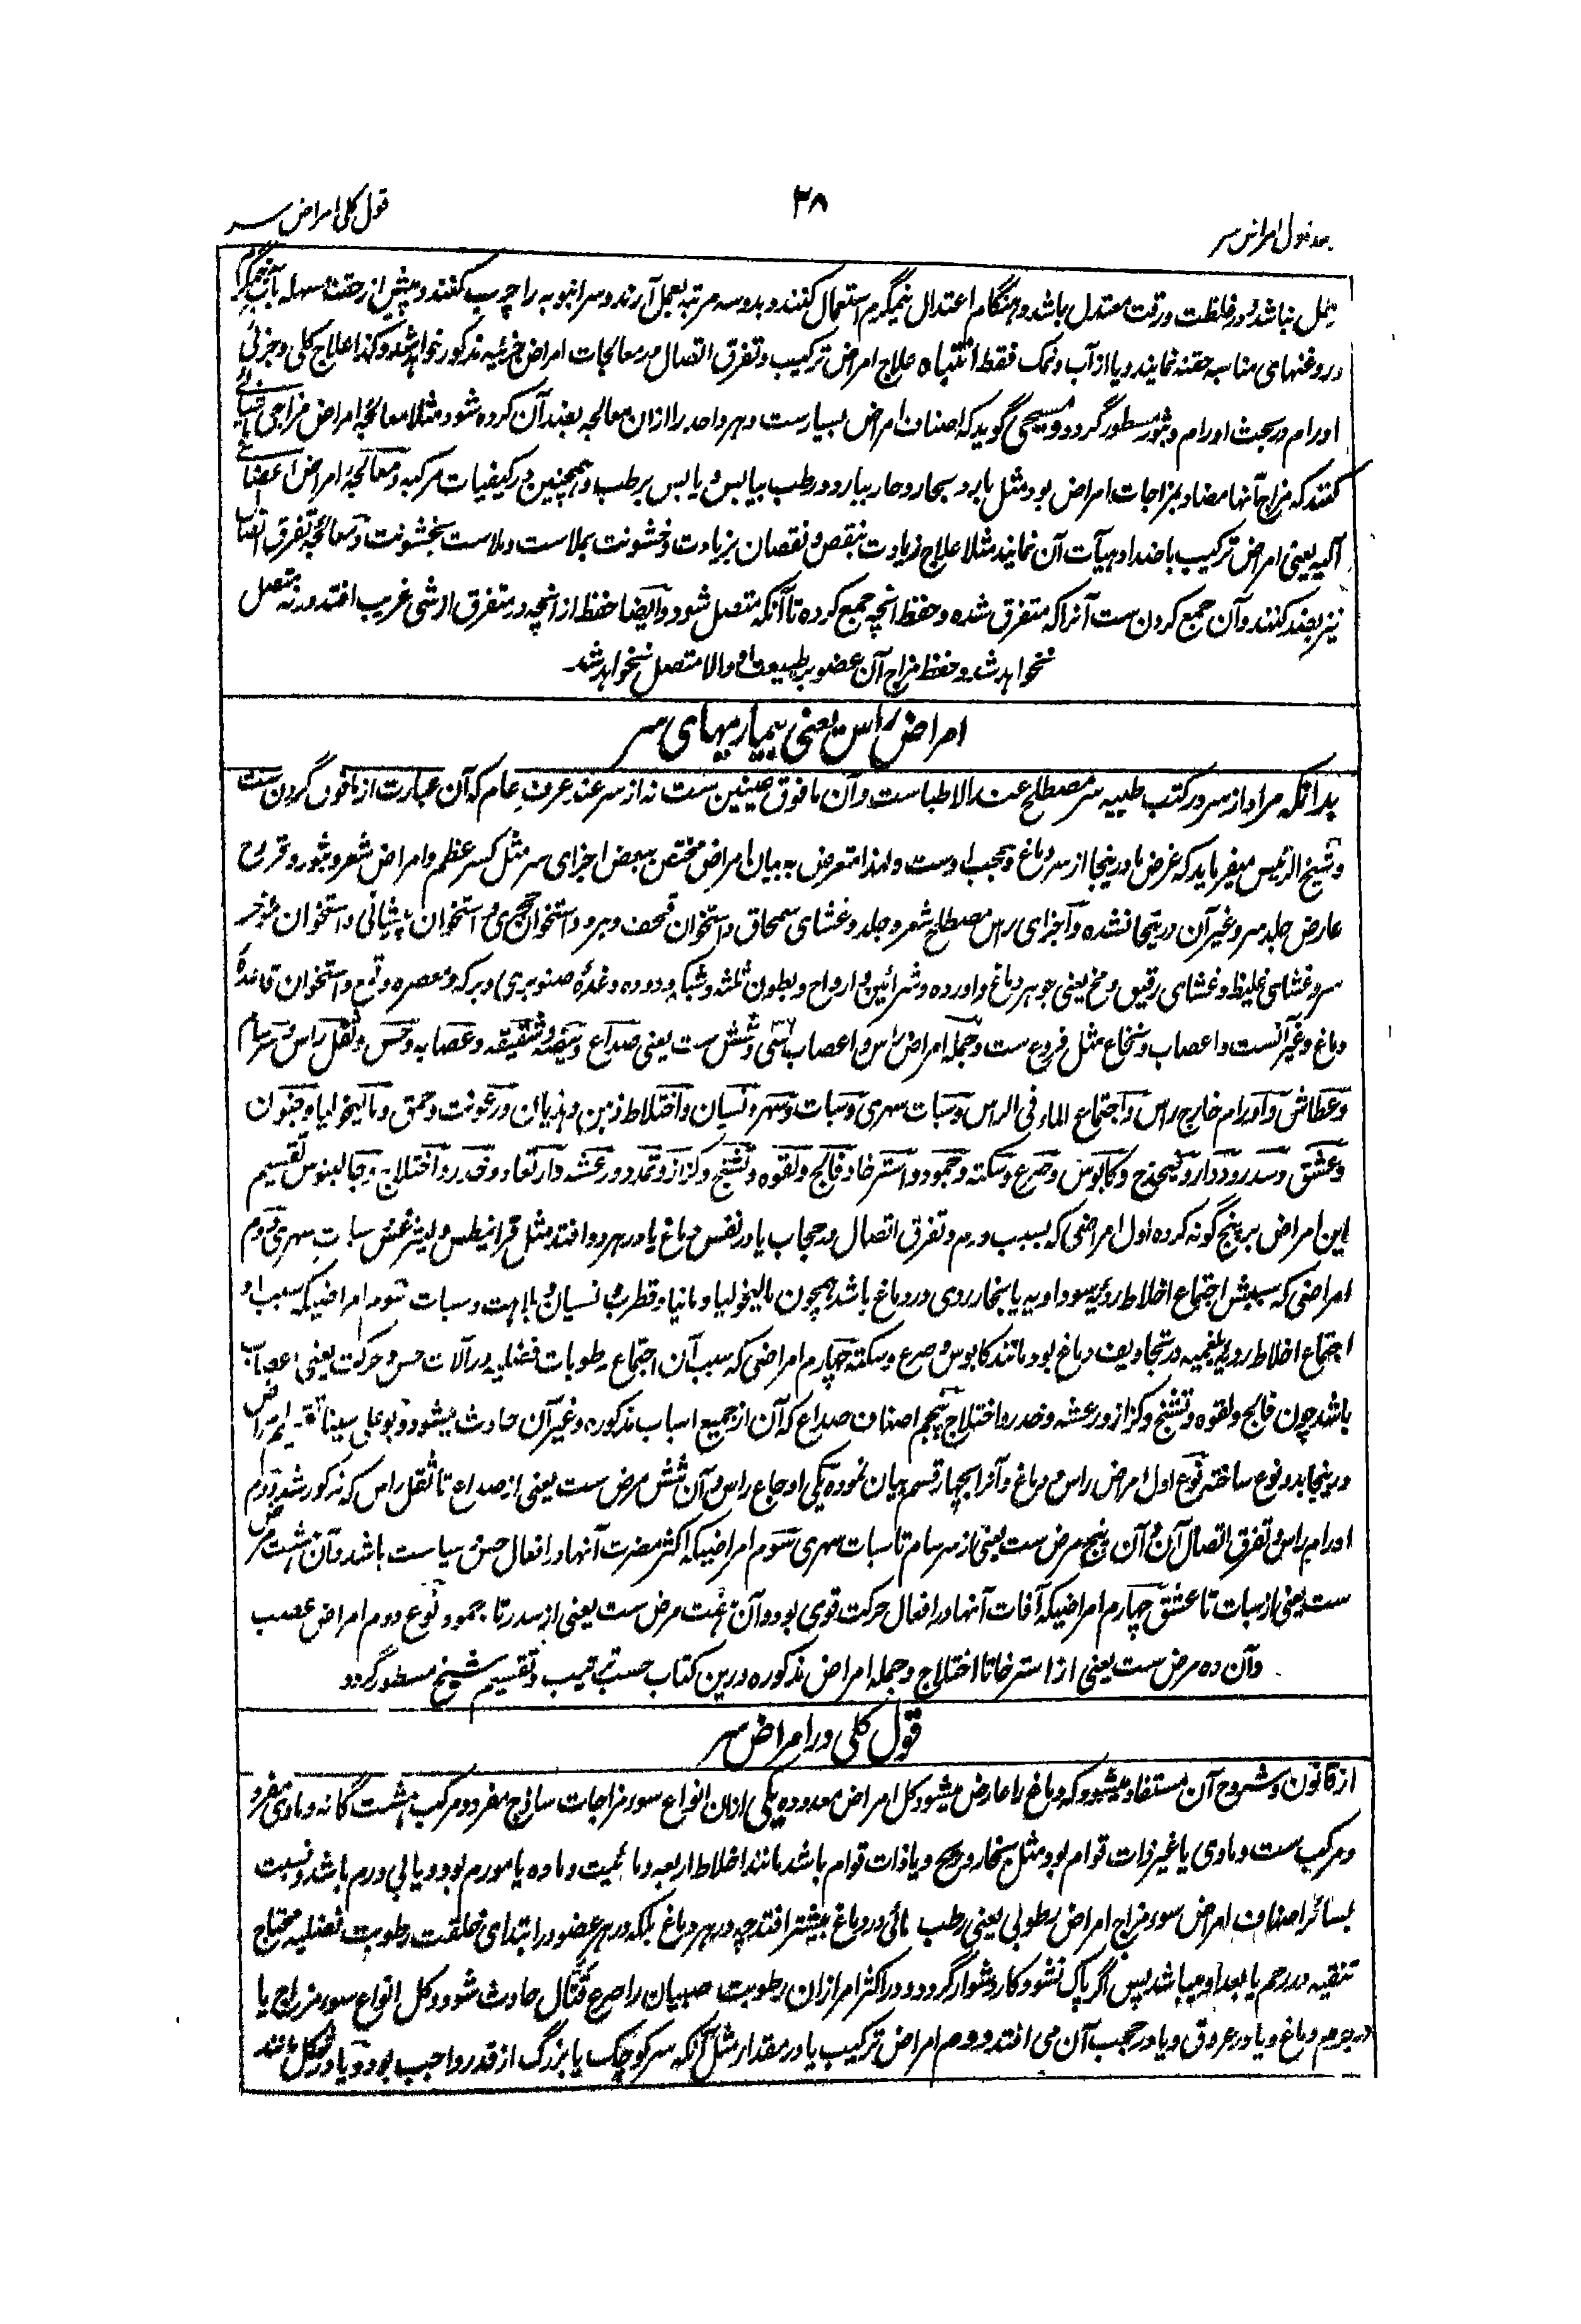 قول کلی امراض سر
۳۸
جدول امراض سر
نباشد و در غلظت و رقت معتدل باشد و هنگام اعتدال نیمگرم استعمال کنند و بدو سه مرتبه بعمل آرند و سر انبوبه را چرب کنند و پیش از حقنهٔ مسهله بآب نیمگرم
و روغنهای مناسبه حقنه نمایند و یا از آب و نمک فقط انتباه علاج امراض ترکیب و تفرق اتصال در معالجات امراض جزئیه مذکور خواهد شد و کذا علاج کلی و جزئی
اورام در بحث اورام و بثور مسطور گردد و مسیحی گوید که اصناف امراض بسیارست و هر واحد را ازان معالجه بضد آن کرده شود مثلا معالجهٔ امراض مزاجی باشیائے
کنند که مزاج آنها مضاد بمزاجات امراض بود مثل بارد بحار و حار ببارد و رطب بیابس و یابس برطب و همچنین در کیفیات مرکبه و معالجهٔ امراض اعضائے
آلیه یعنی امراض ترکیب باضداد هیآت آن نمایند مثلا علاج زیادت بنقص و نقصان بزیادت و خشونت بملاست و ملاست بخشونت و معالجهٔ تفرق اتصال
نیز بضد کنند و آن جمع کردن ست آنرا که متفرق شده و حفظ انچه جمع کرده تا آنکه متصل شود و ایضا حفظ از انچه در متفرق از شی غریب افتد ورنه متصل
نخواهد شد و حفظ مزاج آن عضو بر طبیعت او والا متصل نخواهد شد
امراض راس یعنی بیماریهای سر
بدانکه مراد از سر در کتب طبیه سر مصطلح عند الاطباست و آن ما فوق عینین ست نه از سر عند عرف عام که آن عبارت از ما فوق گردن ست
و شیخ الرئیس میفرماید که غرض ما درینجا از سر دماغ و حجب اوست و لهذا متعرض به بیان امراض مختص ببعض اجزای سر مثل کسر عظم و امراض شعر و بثور و قروح
عارض جلد سر و غیر آن درینجا نشده و اجزای راس مصطلح شعر و جلد و غشای سمحاق و استخوان قحف و هر دو استخوان حجری و استخوان پیشانی و استخوان مؤخر
سر و غشای غلیظ و غشای رقیق و مخ یعنی جوهر دماغ و اورده و شرائین و ارواح و بطون ثلثه و شبکه و دوده و غدهٔ صنوبری و برکه و معصره و قمع و استخوان قاعدهٔ
دماغ و غیر آنست و اعصاب و نخاع مثل فروع ست و جمله امراض راس و اعصاب سی و شش ست یعنی صداع و بیضه و شقیقه و عصابه و حس و ثقل راس و سرسام
و عطاش و اورام خارج راس و اجتماع الماء فی الراس و سبات سهری و سبات و سهر و نسیان و اختلاط ذهن و هذیان و رعونت و حمق و مالیخولیا و جنون
و عشق و سدر و دوار و کابوس و صرع و سکته و جمود و استرخا و فالج و لقوه و تشنج و کزاز و تمدد و رعشه و ارتعاد و خدر و اختلاج و جالینوس تقسیم
این امراض بر پنج گونه کرده اول امراضی که بسبب ورم و تفرق اتصال در حجاب یا در نفس دماغ یا در هر دو افتد مثل قرانیطس و لیثرغس سبات سهری دوم
امراضی که سببش اجتماع اخلاط ردیه سوداویه یا بخار ردی در دماغ باشد همچون مالیخولیا و مانیا و قطرب و نسیان و بلاهت و سبات سوم امراضیکه سبب او
اجتماع اخلاط ردیه بلغمیه در تجاویف دماغ بود مانند کابوس و صرع و سکته چهارم امراضی که سبب آن اجتماع رطوبات فضلیه در آلات حس و حرکت یعنی اعصاب
باشد چون فالج و لقوه و تشنج و کزاز و رعشه و خدر و اختلاج پنجم اصناف صداع که آن از جمیع اسباب مذکوره و غیر آن حادث میشود و بوعلی سینا تقسیم امراض
درینجا بدو نوع ساخته نوع اول امراض راس و دماغ و آنرا بچهار قسم بیان نموده یکی اوجاع راس و آن شش مرض ست یعنی از صداع تا ثقل راس که مذکور شد دوم
اورام راس و تفرق اتصال آن و آن پنج مرض ست یعنی از سرسام تا سبات سهری سوم امراضیکه اکثر مضرت آنها در افعال حس و سیاست باشد و آن هشت مرض
ست یعنی از سبات تا عشق چهارم امراضیکه آفات آنها در افعال حرکت قوی بود و آن هفت مرض ست یعنی از سدر تا جمود و نوع دوم امراض عصب
و آن ده مرض ست یعنی از استرخا تا اختلاج و جمله امراض مذکوره درین کتاب حسب ترتیب و تقسیم شیخ مسطور گردد
قول کلی در امراض سر
از قانون و شروح آن مستفاد میشود که دماغ را عارض میشود کل امراض معدوده یکی ازان انواع سوء مزاجات ساذج مفرد و مرکب هشت گانه و مادی مفرد
و مرکب ست و مادی یا غیر ذات قوام بود مثل بخار و ریح و یا ذات قوام باشد مانند اخلاط اربعه و مائیت و ماده یا مورم بود و یا بی ورم باشد و نسبت
بسائر اصناف امراض سوء مزاج امراض رطوبی یعنی رطب مائی در دماغ بیشتر افتد چه در هر دماغ بلکه در هر عضو در ابتدای خلقت رطوبت فضلیه محتاج
تنقیه در رحم یا بعد او میباشد پس اگر پاک نشود کار دشوار گردد و در اکثر امر ازان رطوبت صبیان را صرع قتال حادث شود و کل انواع سوء مزاج یا
در جرم دماغ و یا در عروق و یا در حجب آن می افتد دوم امراض ترکیب یا در مقدار مثل آنکه سر کوچک یا بزرگ از قدر واجب بود و یا در شکل مانند